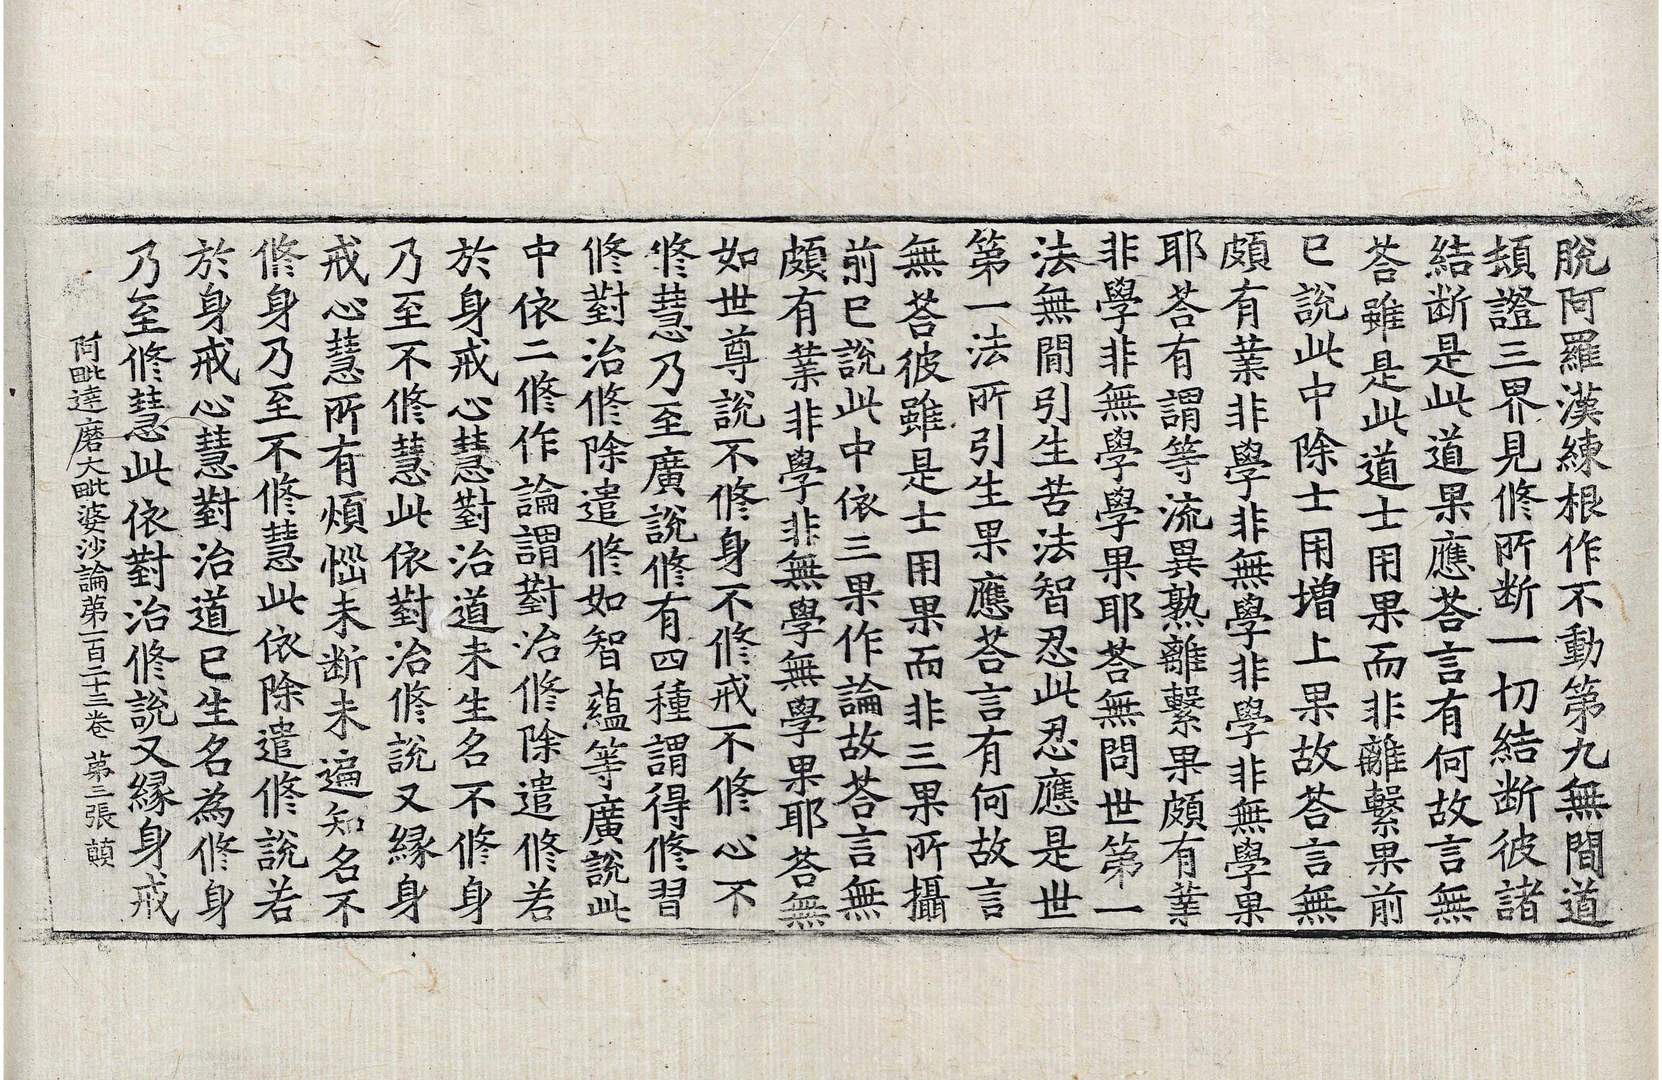 脫阿羅漢練根作不動第九無間道
頓證三界見修所断一切結断彼諸
結断是此道果應荅言有何故言無
荅雖是此道士用果而非離繫果前
已說此中除士用增上果故荅言無
頗有業非學非無學非學非無學果
耶荅有謂等流異熟離繫果頗有業
非學非無學學果耶荅無問世第一
法無間引生苦法智忍此忍應是世
第一法所引生果應荅言有何故言
無荅彼雖是士用果而非三果所攝
前已說此中依三果作論故荅言無
頗有業非學非無學無學果耶荅無
如世尊說不修身不修戒不修心不
修慧乃至廣說修有四種謂得修習
修對治修除遣修如智蘊等廣說此
中依二修作論謂對治修除遣修若
於身戒心慧對治道未生名不修身
乃至不修慧此依對治修說又縁身
戒心慧所有煩惱未断未遍知名不
修身乃至不修慧此依除遣修說若
於身戒心慧對治道已生名為修身
乃至修慧此依對治修說又縁身戒
阿毗達磨大毗婆沙論第一百二十三卷 第三張 顛